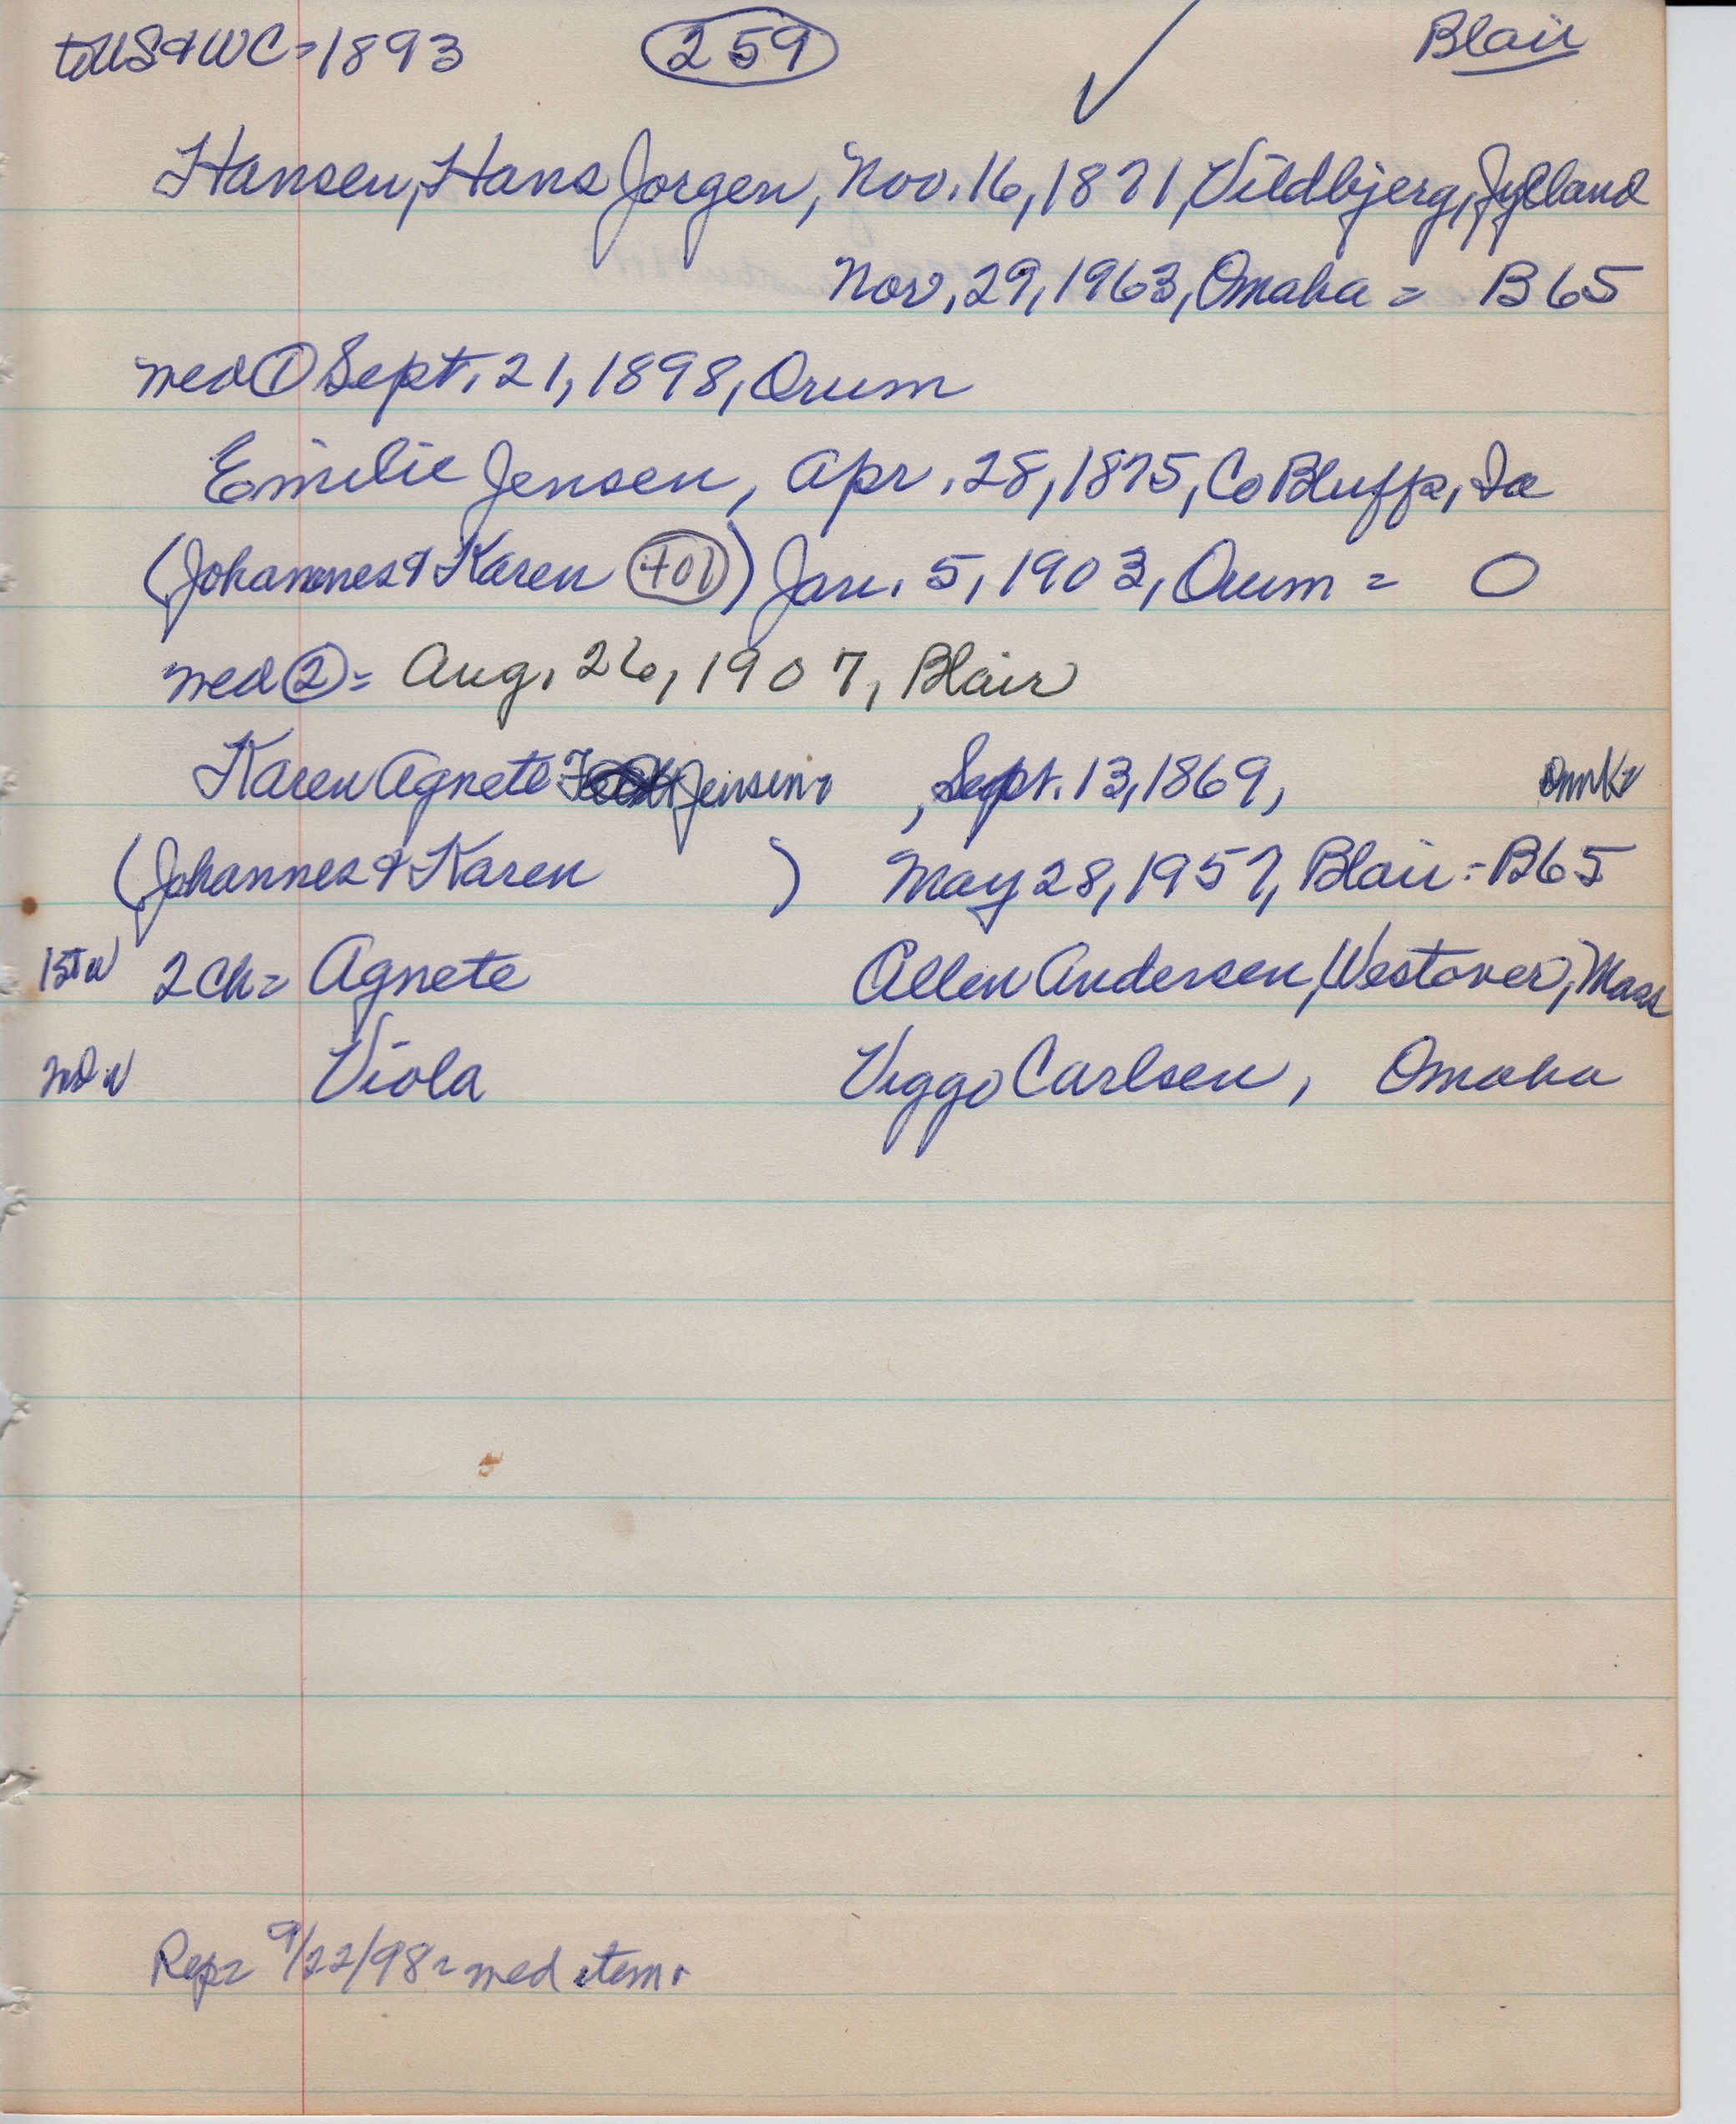 to US & WC = 1893 259 ✓ Blair
Hansen, Hans Jorgen, Nov. 16, 1871, Vildbjerg, Jylland
Nov. 29, 1963, Omaha = B65
med ① Sept. 21, 1898, Orum
Emilie Jensen, Apr. 28, 1875, Co Bluffs, Ia
(Johannes & Karen ) Jan. 5, 1903, Orum = O
med ② = Aug. 26, 1907, Blair
Karen Agnete Jensen , Sept. 13, 1869, Dmk
(Johannes & Karen ) May 28, 1957, Blair = B65
1st w 2 Ch = Agnete Allen Andersen, Westover, Mass
2nd w Viola Viggo Carlsen, Omaha
Rep = 9/22/98 = med item